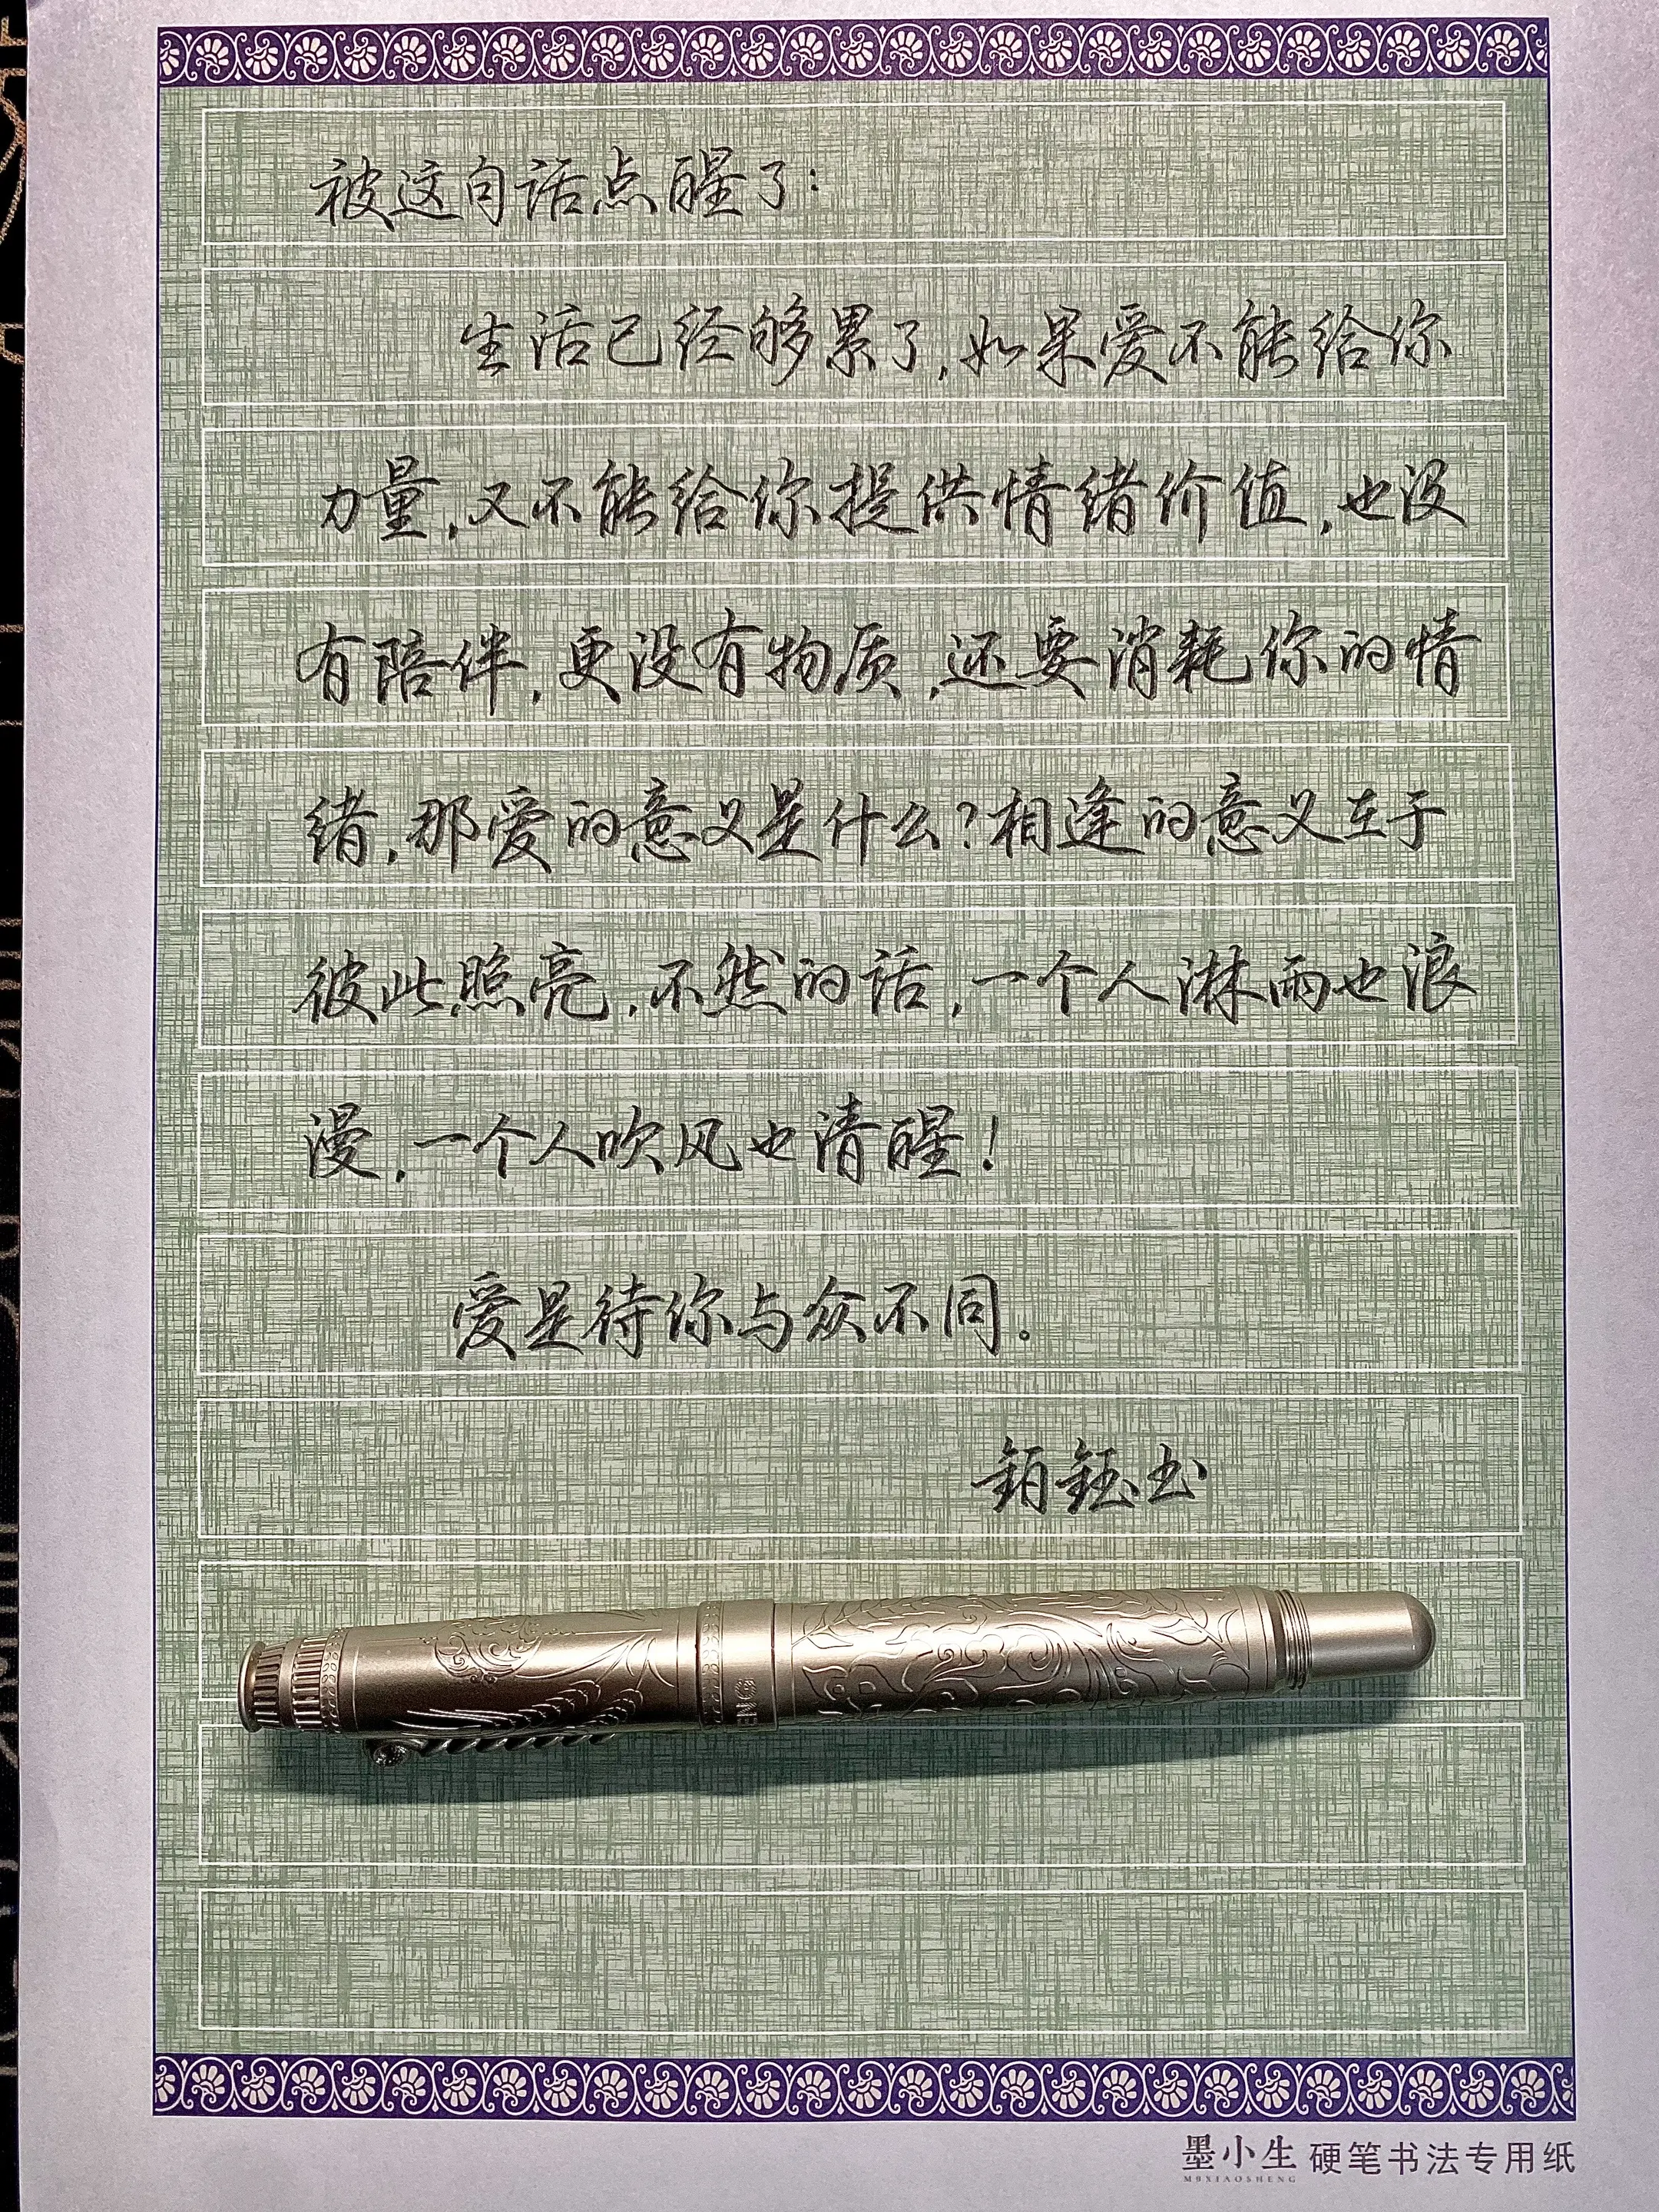 被这句话点醒了：
生活已经够累了，如果爱不能给你
力量，又不能给你提供情绪价值，也没
有陪伴，更没有物质，还要消耗你的情
绪，那爱的意义是什么？相逢的意义在于
彼此照亮，不然的话，一个人淋雨也浪
漫，一个人吹风也清醒！
爱是待你与众不同。
钰书
墨小生 硬笔书法专用纸
MOXIAOSHENG